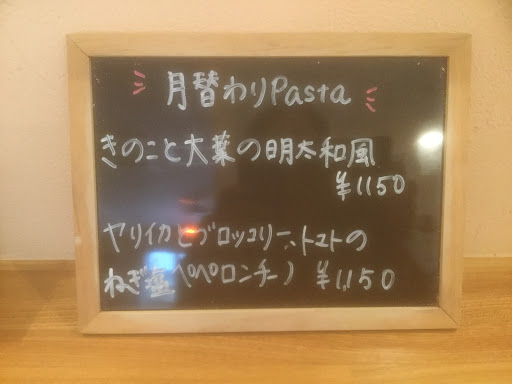 月替わりPasta
きのこと大葉の明太和風
¥1150
ヤリイカとブロッコリー、トマトの
ねぎ塩ペペロンチーノ ¥1,150